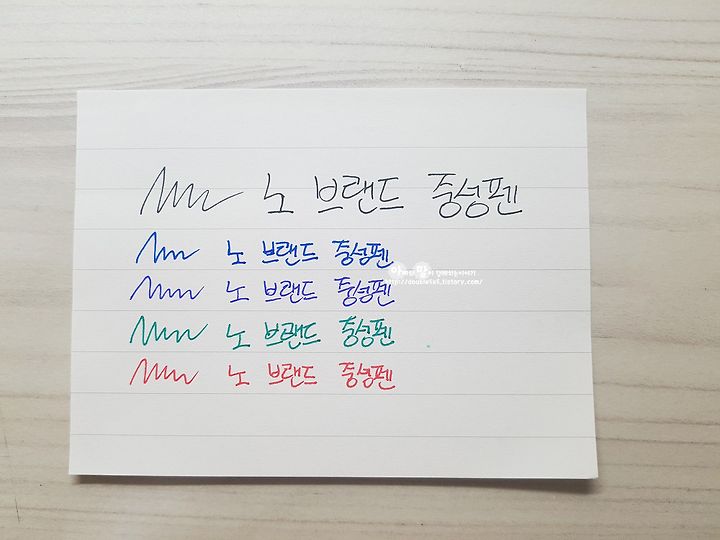 노 브랜드 중성펜
노 브랜드 중성펜
노 브랜드 중성펜
노 브랜드 중성펜
노 브랜드 중성펜